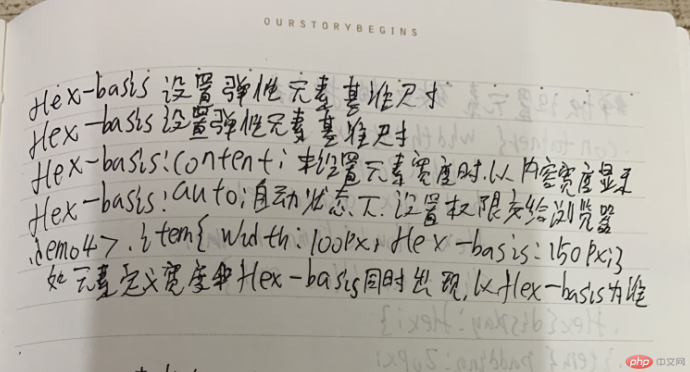 OURSTORYBEGINS
flex-basis 设置弹性元素基准尺寸
flex-basis 设置弹性元素基准尺寸
flex-basis:content; 未设置元素宽度时,以内容宽度显示
flex-basis:auto;自动状态下.设置权限交给浏览器
.demo4>.item{width:100px; flex-basis:150px;}
如元素定义宽度和flex-basis同时出现,以flex-basis为准
php 中文网